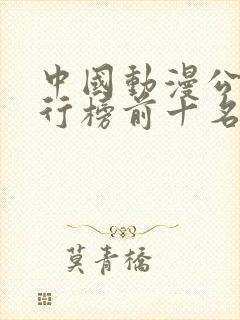 中國動漫公
行榜前十名
莫青橋